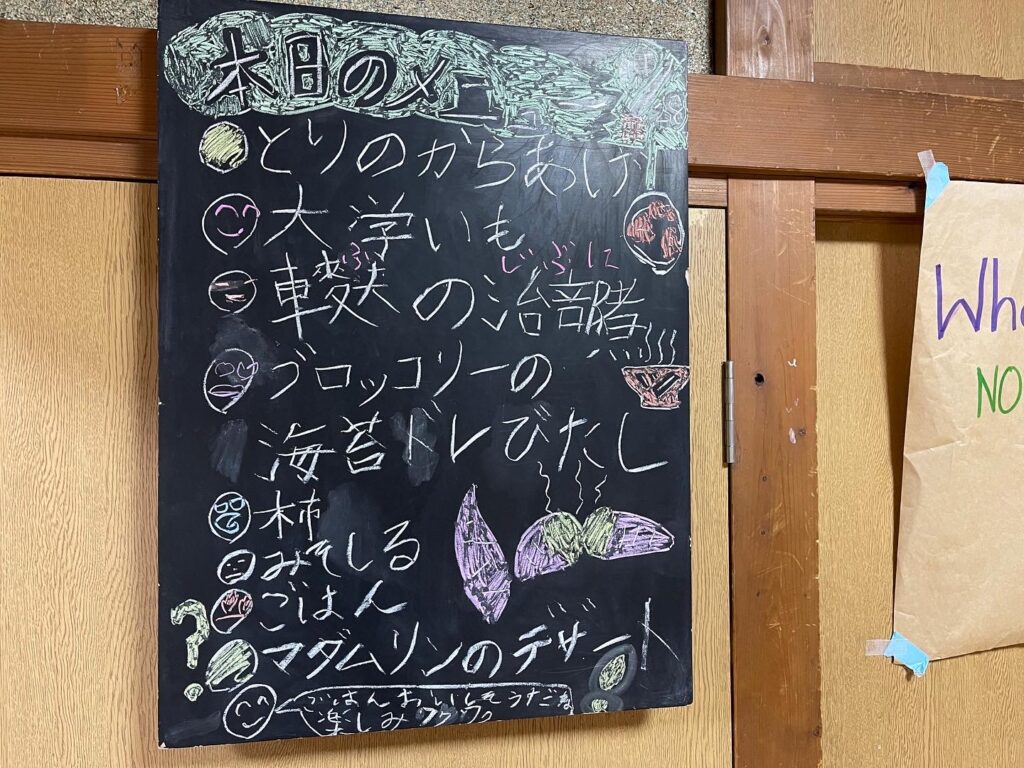 本日のメニュー
とりのからあげ
大学いも
ふ じぶに
車麩の治部煮
ブロッコリーの
海苔ドレびたし
柿
みそしる
ごはん
?
マダムリンのデザート
ごはんおいしそうだね
楽しみワクワク
Wh
NO